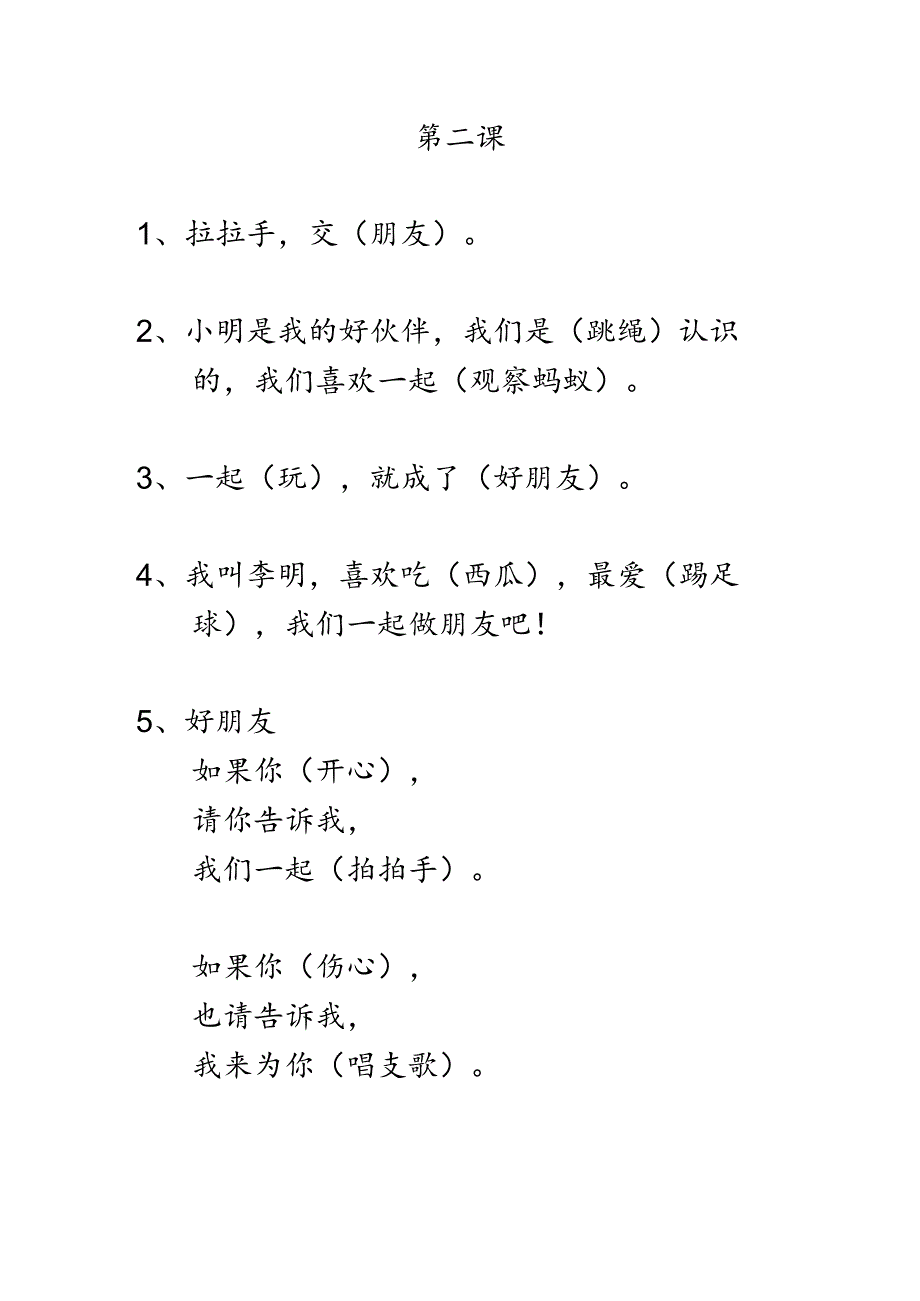 第二课
1、拉拉手，交（朋友）。
2、小明是我的好伙伴，我们是（跳绳）认识
的，我们喜欢一起（观察蚂蚁）。
3、一起（玩），就成了（好朋友）。
4、我叫李明，喜欢吃（西瓜），最爱（踢足
球），我们一起做朋友吧！
5、好朋友
如果你（开心），
请你告诉我，
我们一起（拍拍手）。
如果你（伤心），
也请告诉我，
我来为你（唱支歌）。